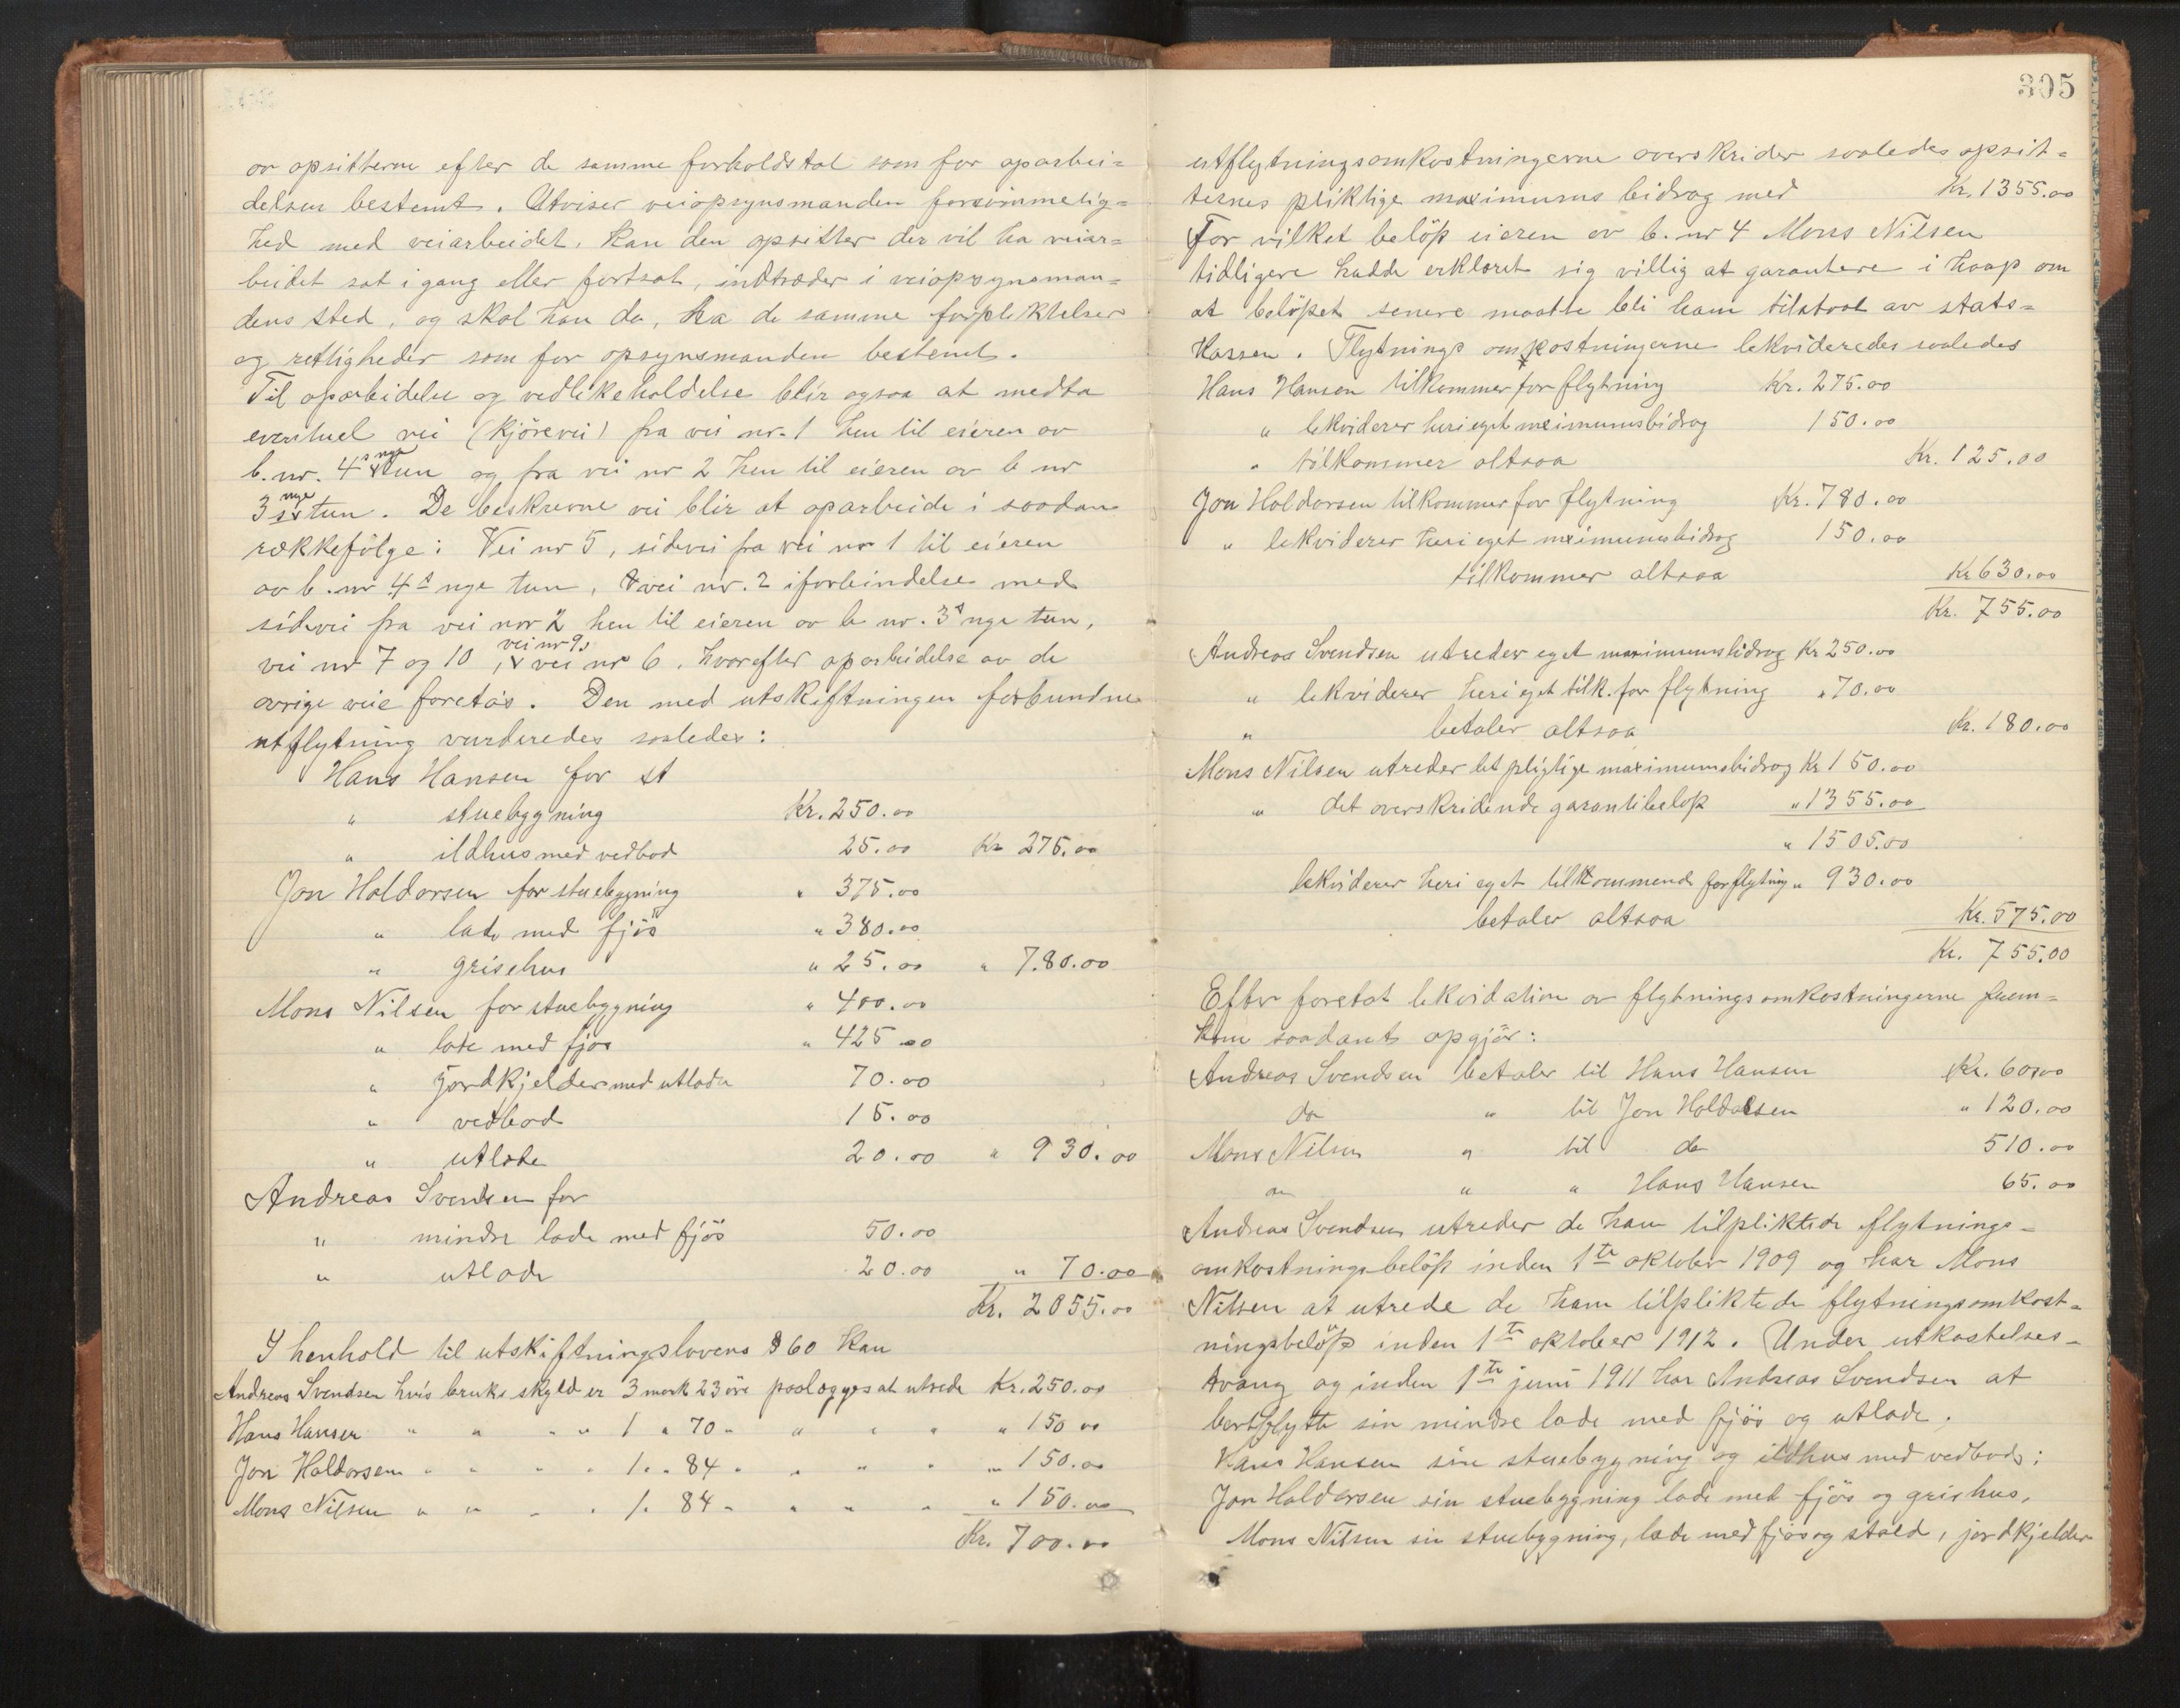 av opsitterne efter de samme forholdstal som for oparbei=
delsen bestemt. Utviser veiopsynsmanden forsömmelig=
hed med veiarbeidet, kan den opsitter der vil ha veiar=
beidet sat i gang eller fortsat, indtræder i veiopsynsman=
dens sted, og skal han da, ha de samme forpliktelser
og rettigheder som for opsynsmanden bestemt.
Til oparbeidelse og vedlikeholdelse blir ogsaa at medta
eventuel vei (kjörevei) fra vei nr. 1 hen til eieren av
b. nr. 4s nye tun og fra vei nr 2 hen til eieren av b nr
3s nye tun. De beskrevne vei blir at oparbeide i saadan
rækkefölge: Vei nr 5, sidevei fra vei nr 1 til eieren
av b. nr 4s nye tun, vei nr. 2 iforbindelse med
sidevei fra vei nr 2 hen til eieren av b nr. 3s nye tun,
vei nr 7 og 10, vei nr 9, vei nr 6, hvorefter oparbeidelse av de
øvrige veie foretas. Den med utskiftningen forbundne
utflytning vurderedes saaledes:
Hans Hansen for st
" stuebygning Kr. 250.00
" ildhus med vedbod 25.00 Kr 275.00
Jon Haldorsen for stuebygning " 375.00
" lade med fjös " 380.00
" grisehus " 25.00 " 7.80.00
Mons Nilsen for stuebygning " 400.00
" lade med fjös " 425.00
" Jordkjelder med utlade 70.00
" vedbod 15.00
" utlade 20.00 " 930.00
Andreas Svendsen for
" mindre lade med fjös 50.00
" utlade 20.00 " 70.00
Kr. 2055.00
I henhold til utskiftningslovens § 60 kan
Andreas Svendsen hvis bruks skyld er 3 mark 23 öre paalægges at utrede Kr. 250.00
Hans Hansen " " " " 1 " 70 " " " " " 150 00
Jon Haldorsen " " " " 1 " 84 " " " " " 150.00
Mons Nilsen " " " " 1 " 84 " " " " " 150.00
Kr. 700.00
305
utflytningsomkostningerne overskrider saaledes opsit=
ternes pliktige maximums bidrag med Kr. 1355.00
For vilket belöp eieren av b. nr 4 Mons Nilsen
tidligere hadde erklæret sig villig at garantere i haap om
at belöpet senere maatte bli ham tilstaat av stats=
kassen. Flytnings omkostningerne lekvideredes saaledes
Hans Hansen tilkommer for flytning Kr. 275.00
" lekviderer heri eget maximumsbidrag 150.00
" tilkommer altsaa Kr. 125.00
Jon Haldorsen tilkommer for flytning Kr. 780.00
" lekviderer heri eget maximumsbidrag 150.00
tilkommer altsaa Kr 630.00
Kr. 755.00
Andreas Svendsen utreder eget maximumsbidrag Kr 250.00
" lekviderer heri eget tilk. for flytning " 70.00
" betaler altsaa Kr. 180.00
Mons Nilsen utreder det pligtige maximumsbidrag Kr 150.00
" det overskridende garantibelöp " 1355.00
" 1505.00
lekviderer heri eget tilkommende for flytnig " 930.00
betaler altsaa Kr. 575.00
Kr. 755.00
Efter foretat lekvidation av flytningsomkostningerne frem=
kom saadant opgjör:
Andreas Svendsen betaler til Hans Hansen Kr. 60.00
do " til Jon Haldorsen " 120.00
Mons Nilsen " til do 510.00
do " " Hans Hansen 65.00
Andreas Svendsen utreder de ham tilpliktede flytnings=
omkostningsbelöp inden 1te oktober 1909 og har Mons
Nilsen at utrede de ham tilpliktede flytningsomkost=
ningsbelöp inden 1te oktober 1912. Under utkastelses=
tvang og inden 1te juni 1911 har Andreas Svendsen at
bortflytte sin mindre lade med fjös og utlade.
Hans Hansen sin stuebygning og ildhus med vedbod;
Jon Haldorsen sin stuebygning lade med fjös og grishus,
Mons Nilsen sin stuebygning, lade med fjös og stald, jordkjelder